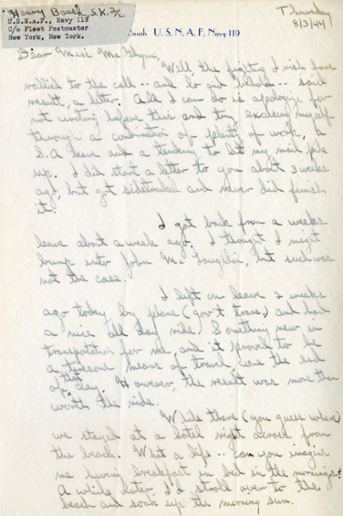 Henry Bausch S.K. 3/c
U.S.N.A.F., Navy 119
c/o Fleet Postmaster
New York, New York.
U.S.N.A.F. Navy 119
Thursday
8/3/44
Dear Miss
Well, the fighting Irish have
rallied to the call .. and
result, a letter. All I can do is apologize for
not writing before this and try excusing myself
through a combination of plenty of work, a
S.A. leave and a tendency to let my mail pile
up. I did start a letter to you about 3 weeks
ago, but got sidetracked and never did finish
it.
I got back from a weeks
leave about a week ago. I thought I might
bump into John Mc Loughlin, but such was
not the case.
I left on leave 2 weeks
ago today by plane (gov't trans) and had
a nice all day ride. Something new in
transportation for me, and it proved to be
a tiresome means of travel, come the end
of the day. However, the result was more than
worth the ride.
While there (you guess where)
we stayed at a hotel right across from
the beach. What a life .. Can you imagine
me having breakfast in bed in the mornings?
A while later I'd stroll over to the
beach and soak up the morning sun.